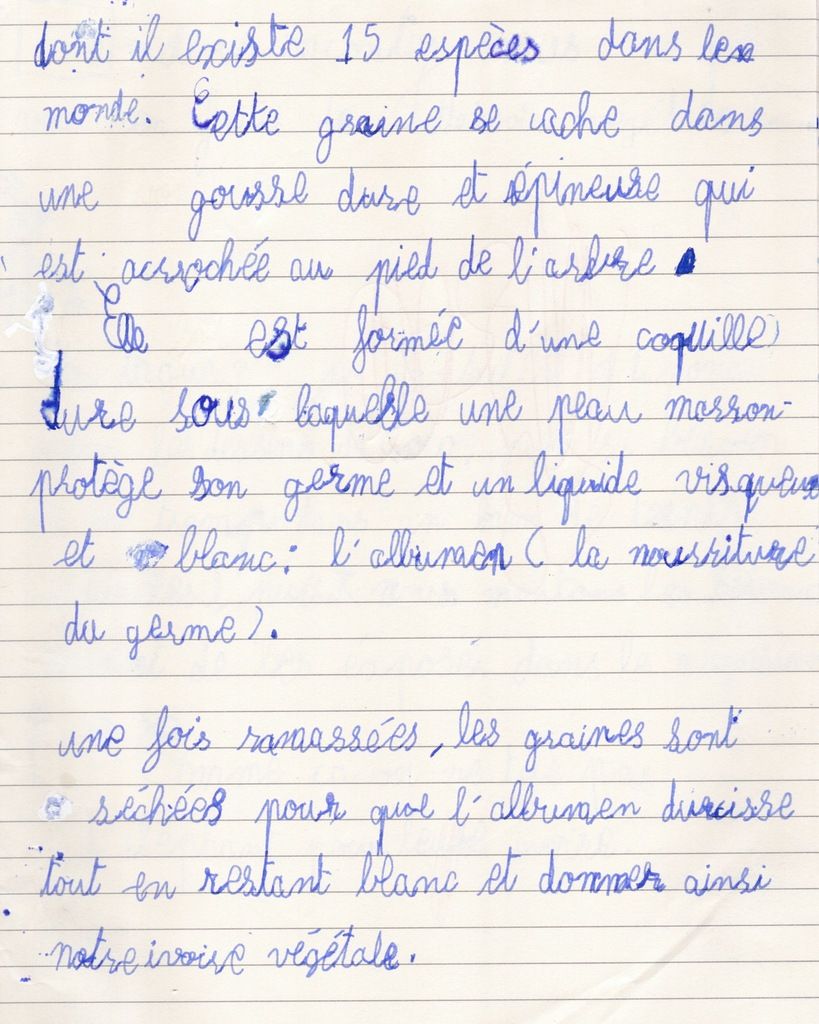 dont il existe 15 espèces dans le
monde. Cette graine se cache dans
une gousse dure et épineuse qui
est accrochée au pied de l'arbre.
Elle est formée d'une coquille
dure sous laquelle une peau marron
protège son germe et un liquide visqueux
et blanc : l'albumen ( la nourriture
du germe ).
une fois ramassées, les graines sont
séchées pour que l'albumen durcisse
tout en restant blanc et donner ainsi
notre ivoire végétale.